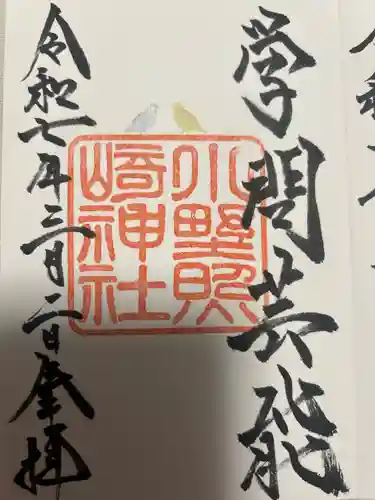 学問芸能
小野照
崎神社
令和七年三月二日奉拝